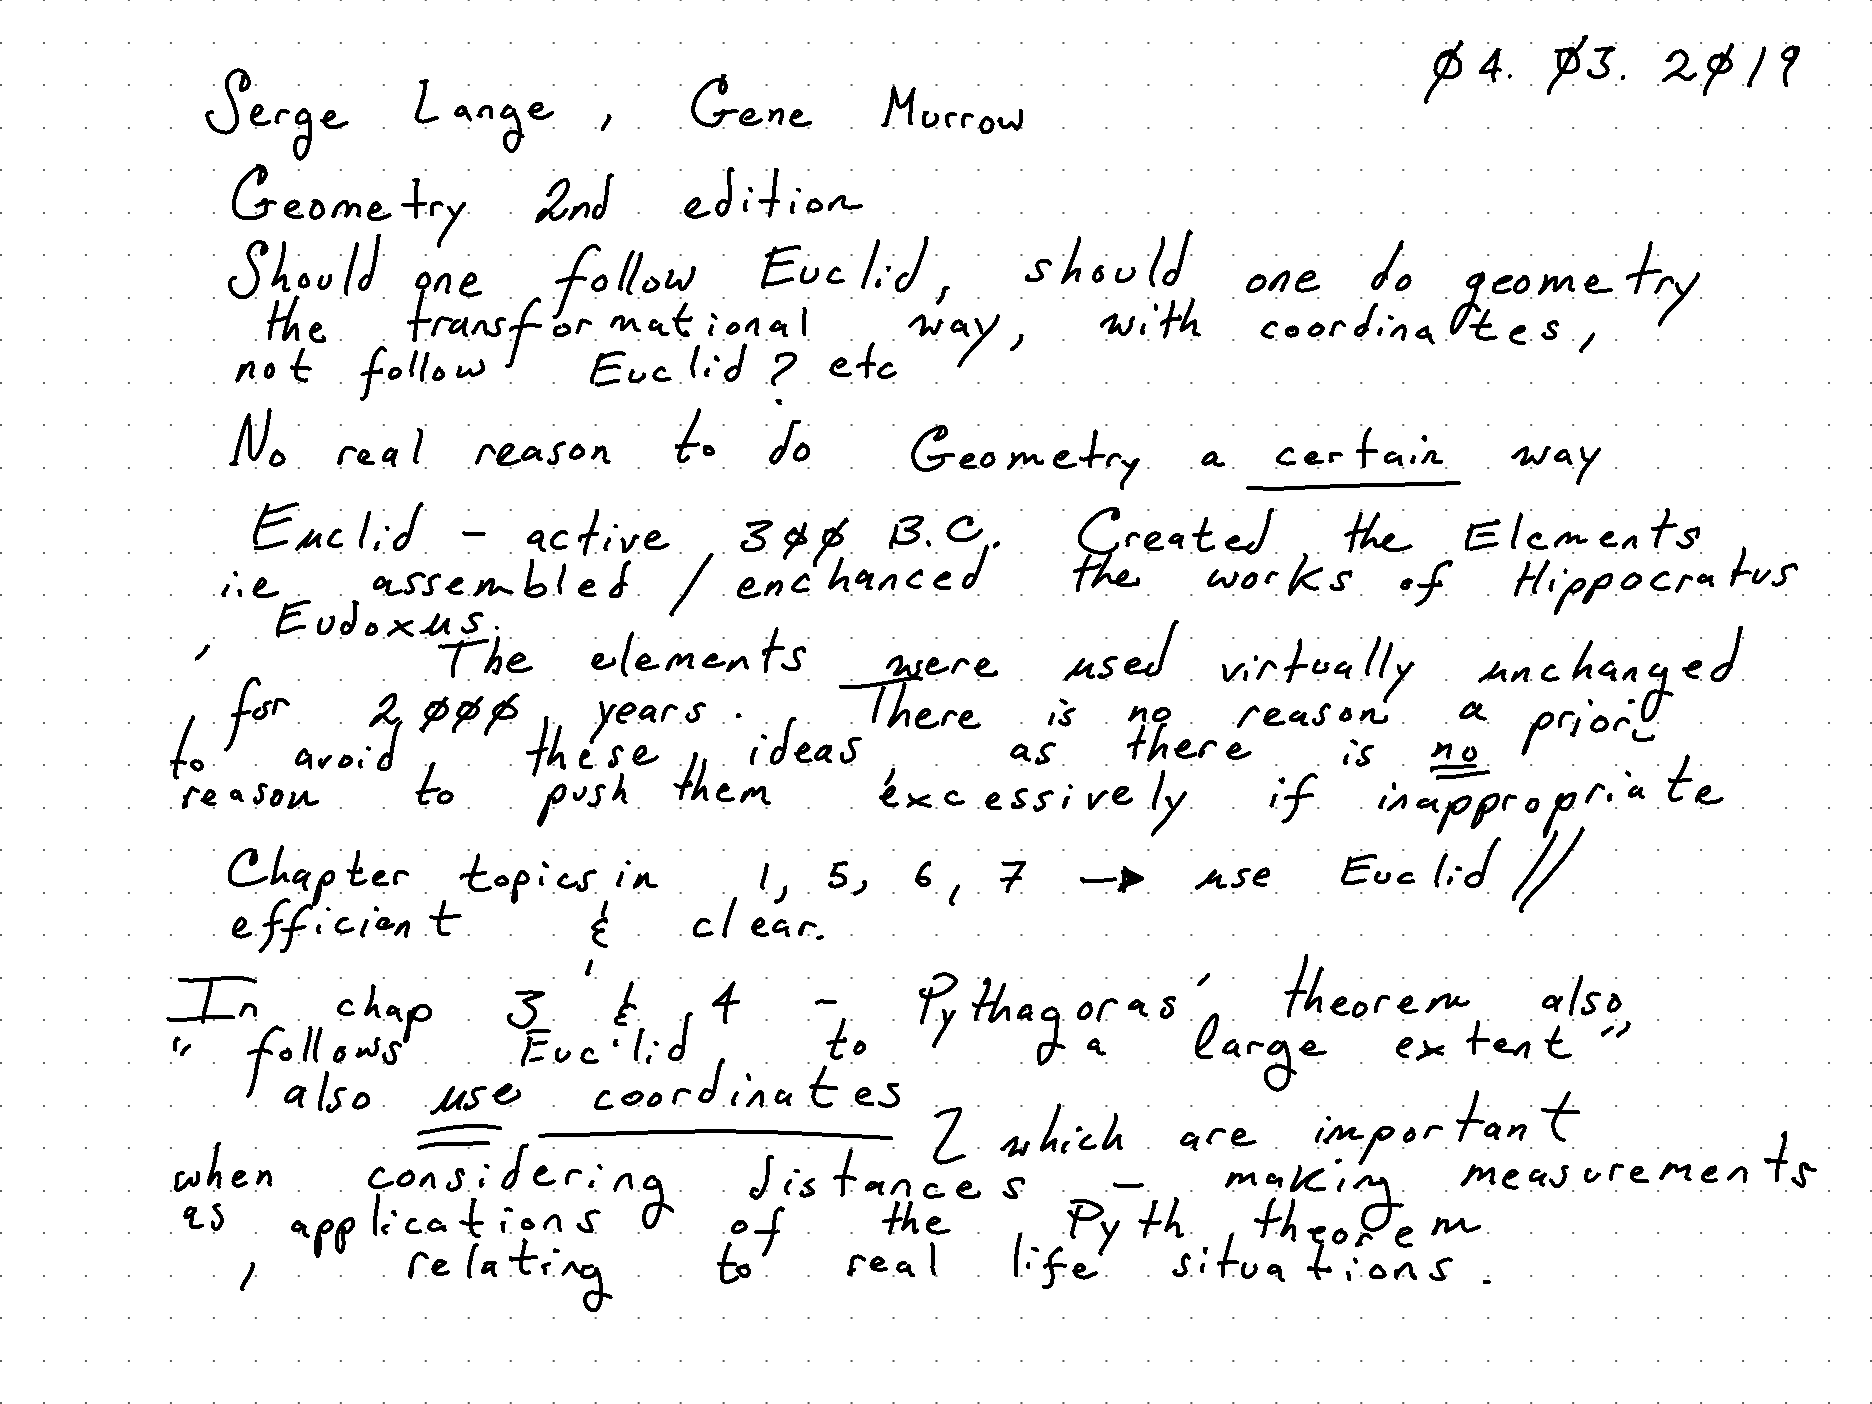 04. 03. 2019
Serge Lange, Gene Murrow
Geometry 2nd edition
Should one follow Euclid, should one do geometry
the transformational way, with coordinates,
not follow Euclid? etc
No real reason to do Geometry a certain way
Euclid - active 300 B.C. Created the Elements
i.e assembled / enchanced the works of Hippocratus
, Eudoxus.
The elements were used virtually unchanged
for 2,000 years. There is no reason a priori
to avoid these ideas as there is no
reason to push them excessively if inappropriate
Chapter topics in 1, 5, 6, 7 → use Euclid //
efficient & clear.
In chap 3 & 4 - Pythagoras' theorem also
"follows Euclid to a large extent"
also use coordinates
which are important
when considering distances - making measurements
as applications of the Pyth theorem
, relating to real life situations.